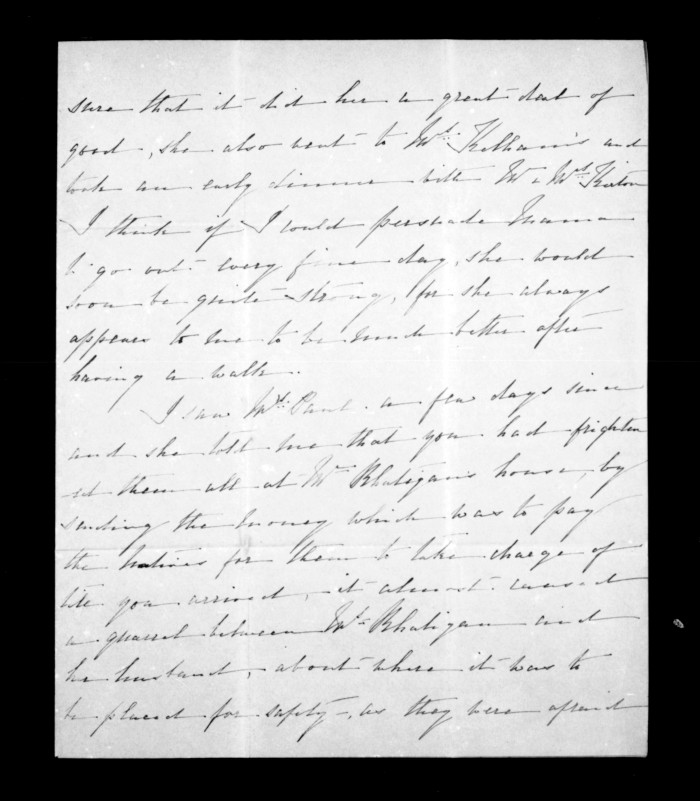 sure that it did her a great deal of
good, she also went to Mrs. Kelham's and
took an early dinner with Mr & Mrs. Kirton
I think if I could persuade Mama
to go out every fine day, she would
soon be quite strong, for she always
appears to me to be much better after
having a walk.
I saw Mrs. Paul a few days since
and she told me that you had frighten
-ed them all at Mrs Rhatigan's house, by
sending the money which was to pay
the Natives for them to take charge of
till you arrived, it almost caused
a quarrel between Mrs. Rhatigan and
her husband, about where it was to
be placed for safety, as they were afraid